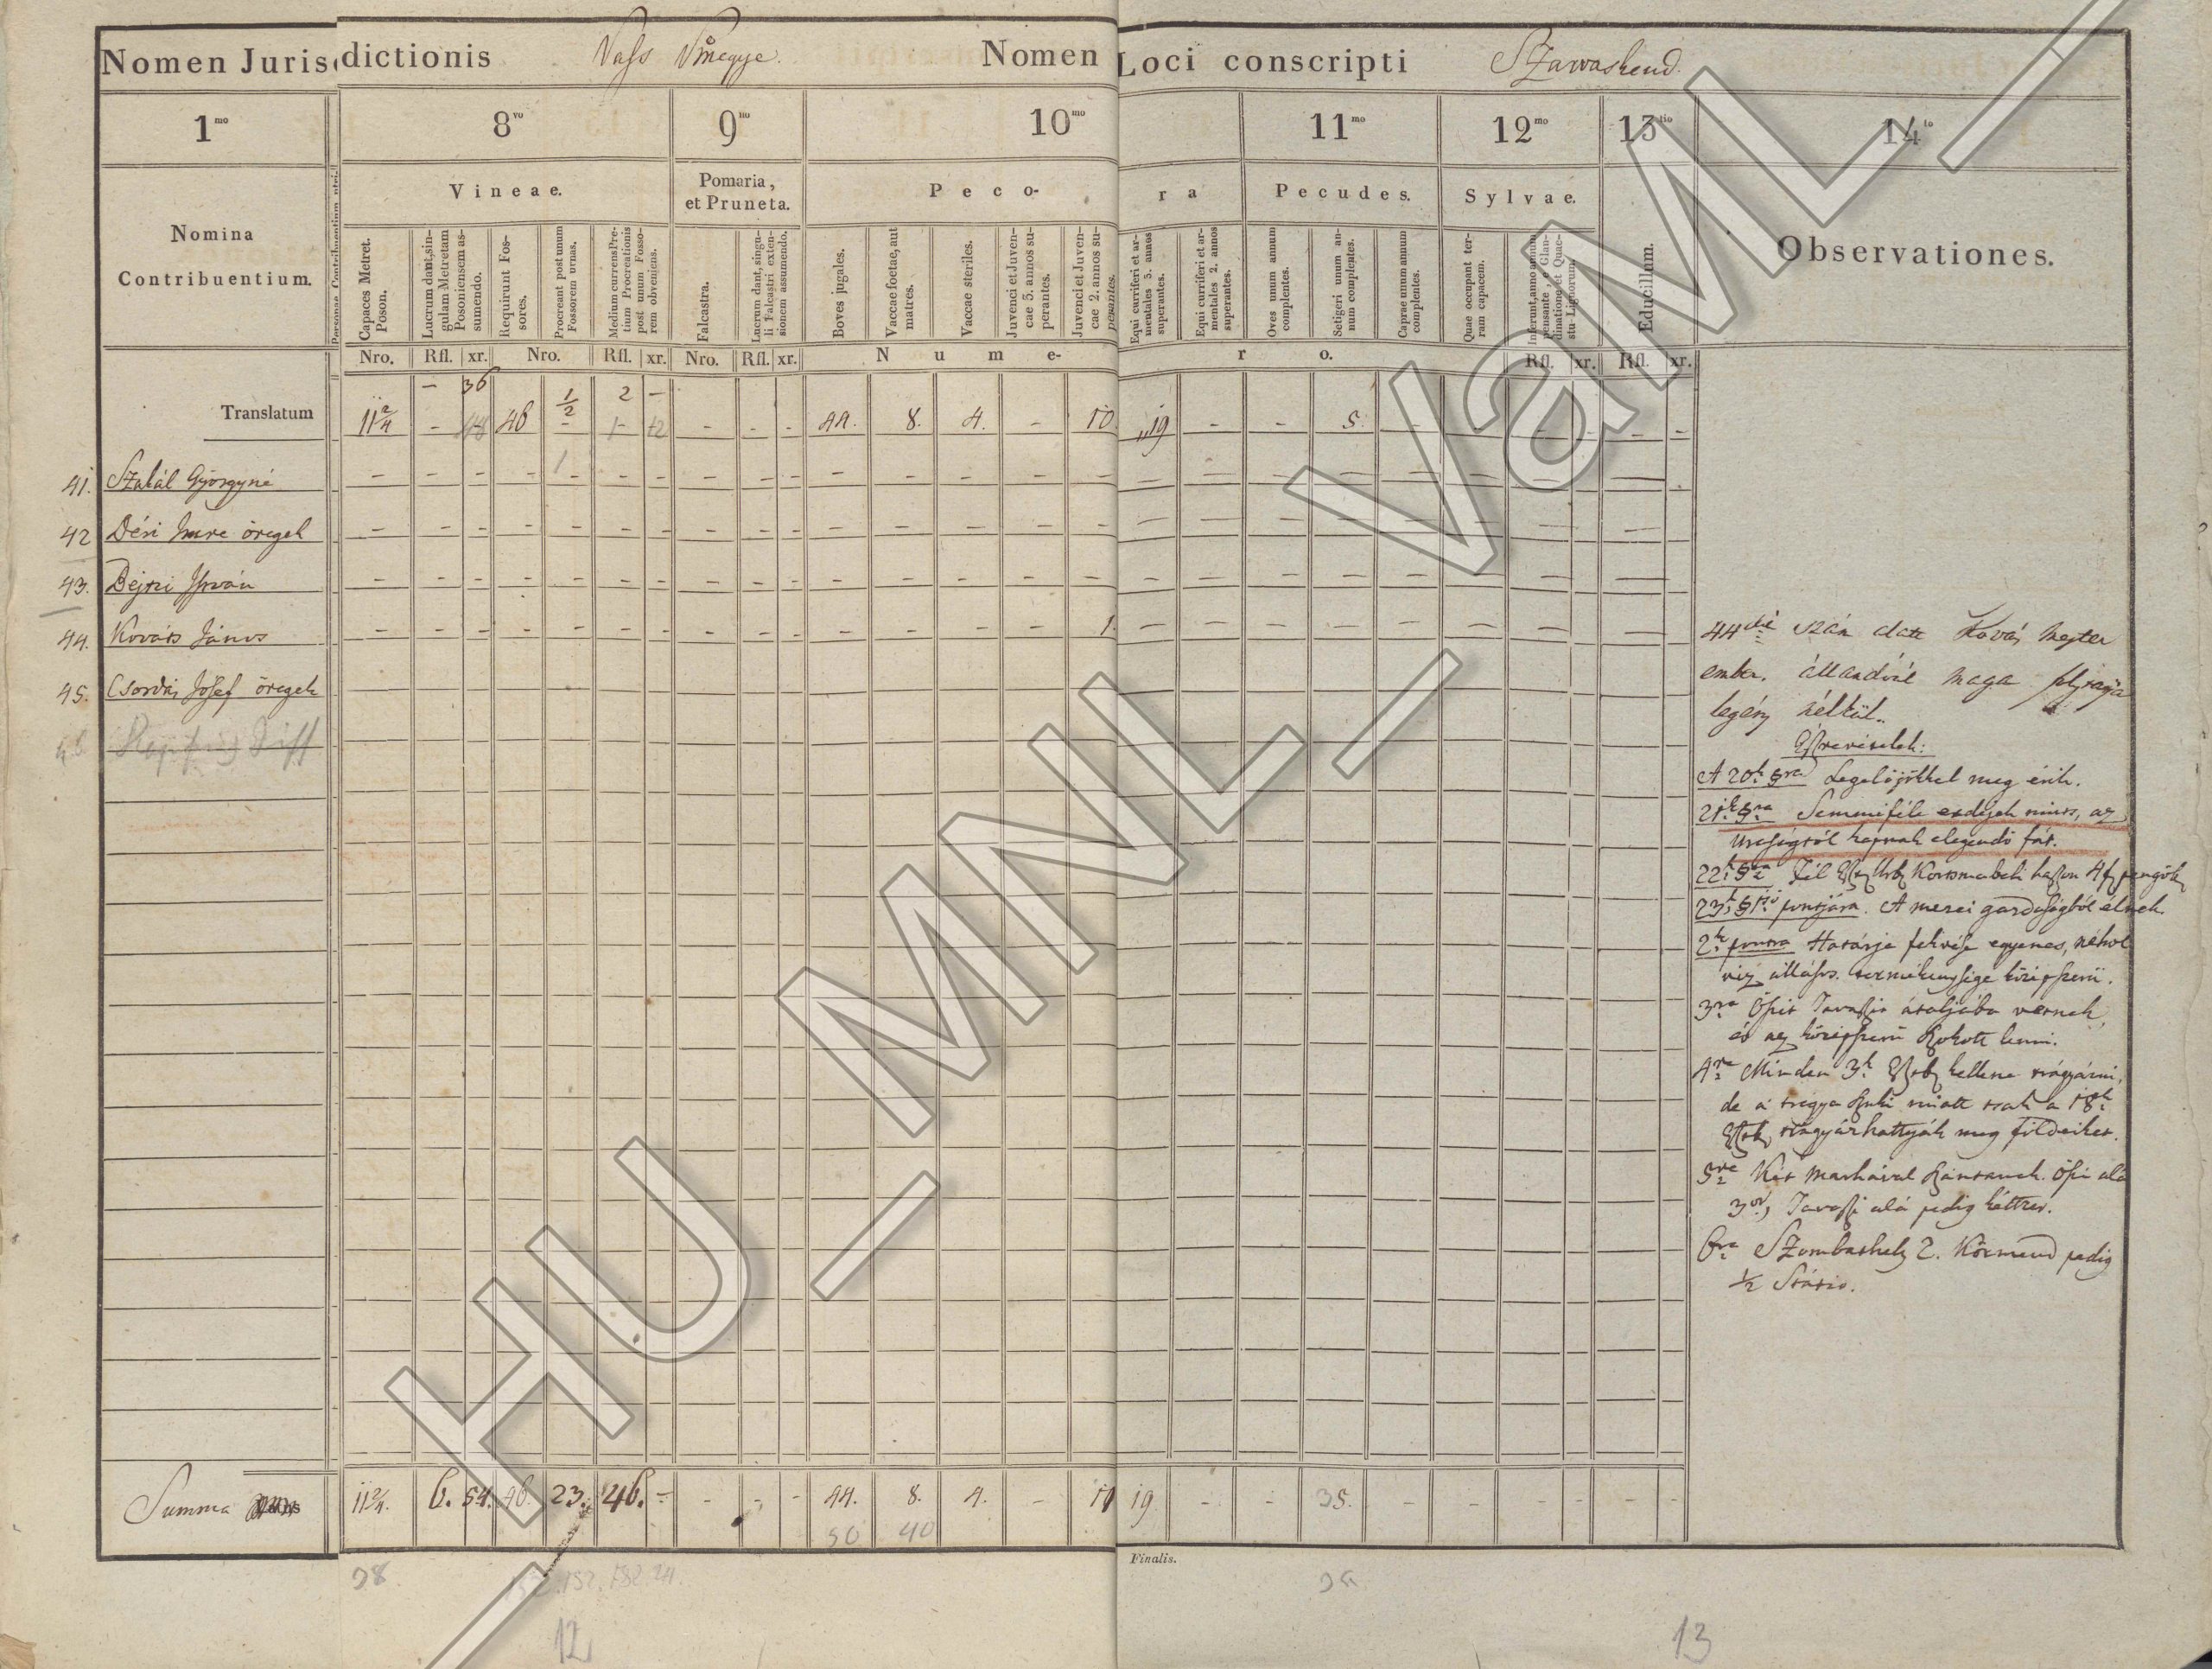 Nomen Jurisdictionis Vass Vmegye. Nomen Loci conscripti Szarvaskend.
1mo 8vo 9no 10mo 11mo 12mo 13tio 14to
Nomina Contribuentium.
Vineae.
Pomaria, et Pruneta.
Peco-
ra
Pecudes.
Sylvae.
Observationes.
Capaces Metret. Poson.
Lucrum dant, singulam Metretam Posoniensem assumendo.
Requirunt Fossores.
Procreant post unum Fossorem urnas.
Medium currens Pretium Procreationis post unum Fossorem obveniens.
Falcastra.
Lucrum dant, singuli Falcastri extensionem assumendo.
Boves jugales.
Vaccae foetae, aut matres.
Vaccae steriles.
Juvenci et Juvencae 3. annos superantes.
Juvenci et Juvencae 2. annos superantes.
Equi curriferi et armentales 3. annos superantes.
Equi curriferi et armentales 2. annos superantes.
Oves unum annum complentes.
Setigeri unum annum complentes.
Caprae unum annum complentes.
Quae occupant terram capacem.
Educillum.
Nro. Rfl. xr. Nro. Rfl. xr. Nro. Rfl. xr. Nume- ro. Rfl. xr. Rfl. xr.
– 36 1/2 2 –
Translatum 11 2/4 – 48 46 – 1 12 – – – 44. 8. 4. – 10 19 – – 5. – – – – – –
41. Szakál Györgyné
42 Déri Imre öregek
43. Bejczi István
44. Kováts János 1.
45. Csordás Josef öregek
46
44dik szám alatt Kovás Mester
ember, állandóúl maga
legény nélkül.
Észrevételek:
A 20k §ra Legelőjökkel meg érik.
21k §ra Semmiféle erdejek nincs, az
Uraságtól kapnak elegendő fát.
22k §ra Fél Eszt. Urb. Korcsmabeli haszon 4 f pengők
23k § 1ső pontjára. A mezei gazdaságból élnek.
2k pontra Határja fekvése egyenes, néhol
víz állásos. termékenysége középszerű.
3ra Őszit Tavaszit átaljába vetnek,
és az középszerű szokott lenni.
4re Minden 3k Eszt. kellene trágyázni,
de a trágya szűke miatt csak a 18k
Eszt. trágyázhattyák meg földeiket.
5re Két marhával szántanak. Őszi alá
3or, Tavaszi alá pedig kéttzer.
6ra Szombathely 2. Körmend pedig
1/2 Statio.
Summa 11 2/4. 6. 54. 46. 23. 46. – – – – 44. 8. 4. – 11 19. – – 35. – – – – – –
50 40
Finalis.
38
12
13